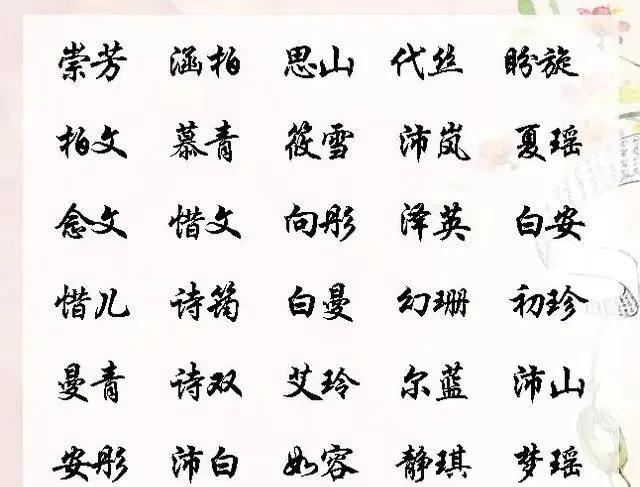 崇芳 涵柏 思山 代丝 盼旋
柏文 慕青 筱雪 沛岚 夏瑶
念文 惜文 向彤 泽英 白安
惜儿 诗筠 白曼 幻珊 初珍
曼青 诗双 艾玲 尔蓝 沛山
安彤 沛白 如容 静琪 梦瑶